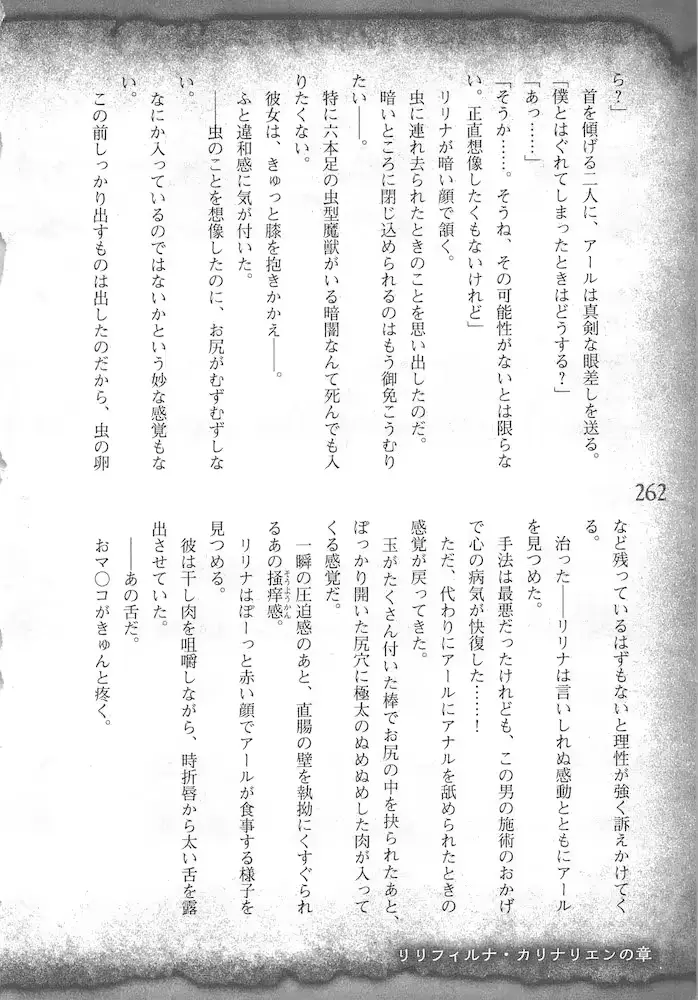 ら？」
　首を傾げる二人に、アールは真剣な眼差しを送る。
「僕とはぐれてしまったときはどうする？」
「あっ……」
「そうか……。そうね、その可能性がないとは限らな
い。正直想像したくもないけれど」
　リリナが暗い顔で頷く。
　虫に連れ去られたときのことを思い出したのだ。
　暗いところに閉じ込められるのはもう御免こうむり
たい――。
　特に六本足の虫型魔獣がいる暗闇なんて死んでも入
りたくない。
　彼女は、きゅっと膝を抱きかかえ――。
　ふと違和感に気が付いた。
　――虫のことを想像したのに、お尻がむずむずしな
い。
　なにか入っているのではないかという妙な感覚もな
い。
　この前しっかり出すものは出したのだから、虫の卵
262
など残っているはずもないと理性が強く訴えかけてく
る。
　治った――リリナは言いしれぬ感動とともにアール
を見つめた。
　手法は最悪だったけれども、この男の施術のおかげ
で心の病気が快復した……！
　ただ、代わりにアールにアナルを舐められたときの
感覚が戻ってきた。
　玉がたくさん付いた棒でお尻の中を抉られたあと、
ぽっかり開いた尻穴に極太のぬめぬめした肉が入って
くる感覚だ。
　一瞬の圧迫感のあと、直腸の壁を執拗にくすぐられ
るあの掻痒感。
そうようかん
　リリナはぽーっと赤い顔でアールが食事する様子を
見つめる。
　彼は干し肉を咀嚼しながら、時折唇から太い舌を露
出させていた。
　――あの舌だ。
　おマ〇コがきゅんと疼く。
リリフィルナ・カリナリエンの章